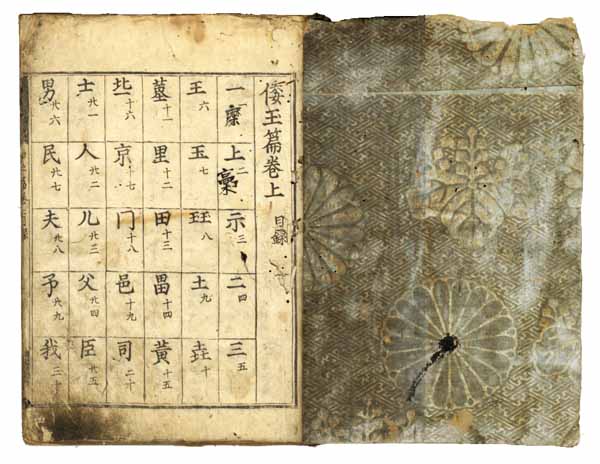 倭玉篇卷上 目録
一 上二 示三 二四 三五
王六 玉七 玨八 土九 垚十
十一 里十二 田十三 畕十四 黃十五
丠十六 京十七 门十八 邑十九 司二十
士廾一 人廾二 儿廾三 父廾四 臣廾五
男廾六 民廾七 夫廾八 予廾九 我三十